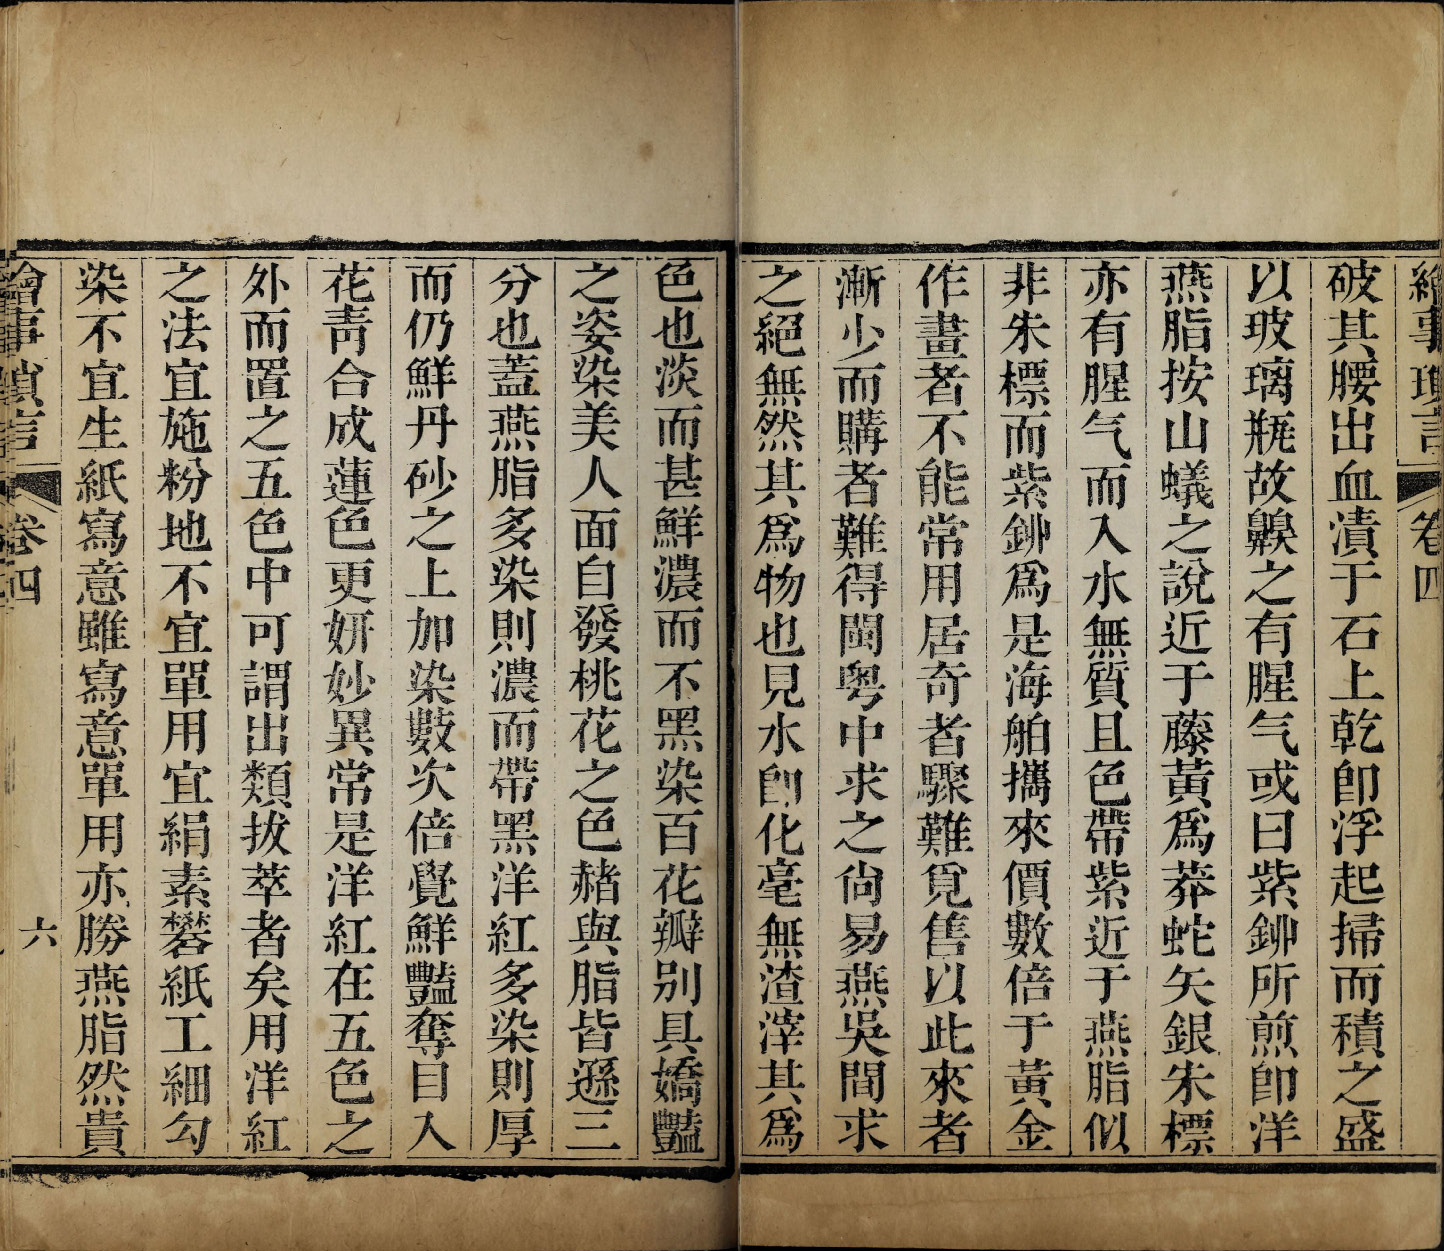 繪事瑣言
卷四
破其腰出血漬于石上乾卽浮起掃而積之盛
以玻璃瓶故齅之有腥气或曰紫鉚所煎卽洋
燕脂按山蟻之說近于藤黃爲莽蛇矢銀朱標
亦有腥气而入水無質且色帶紫近于燕脂似
非朱標而紫鉚爲是海舶攜來價數倍于黃金
作畫者不能常用居奇者驟難覓售以此來者
漸少而購者難得閩粵中求之尙易燕吳間求
之絕無然其爲物也見水卽化毫無渣滓其爲
色也淡而甚鮮濃而不黑染百花瓣別具嬌豔
之姿染美人面自發桃花之色赭與脂皆遜三
分也蓋燕脂多染則濃而帶黑洋紅多染則厚
而仍鮮丹砂之上加染數次倍覺鮮豔奪目入
花靑合成蓮色更妍妙異常是洋紅在五色之
外而置之五色中可謂出類拔萃者矣用洋紅
之法宜施粉地不宜單用宜絹素礬紙工細勾
染不宜生紙寫意雖寫意單用亦勝燕脂然貴
繪事瑣言
卷四
六